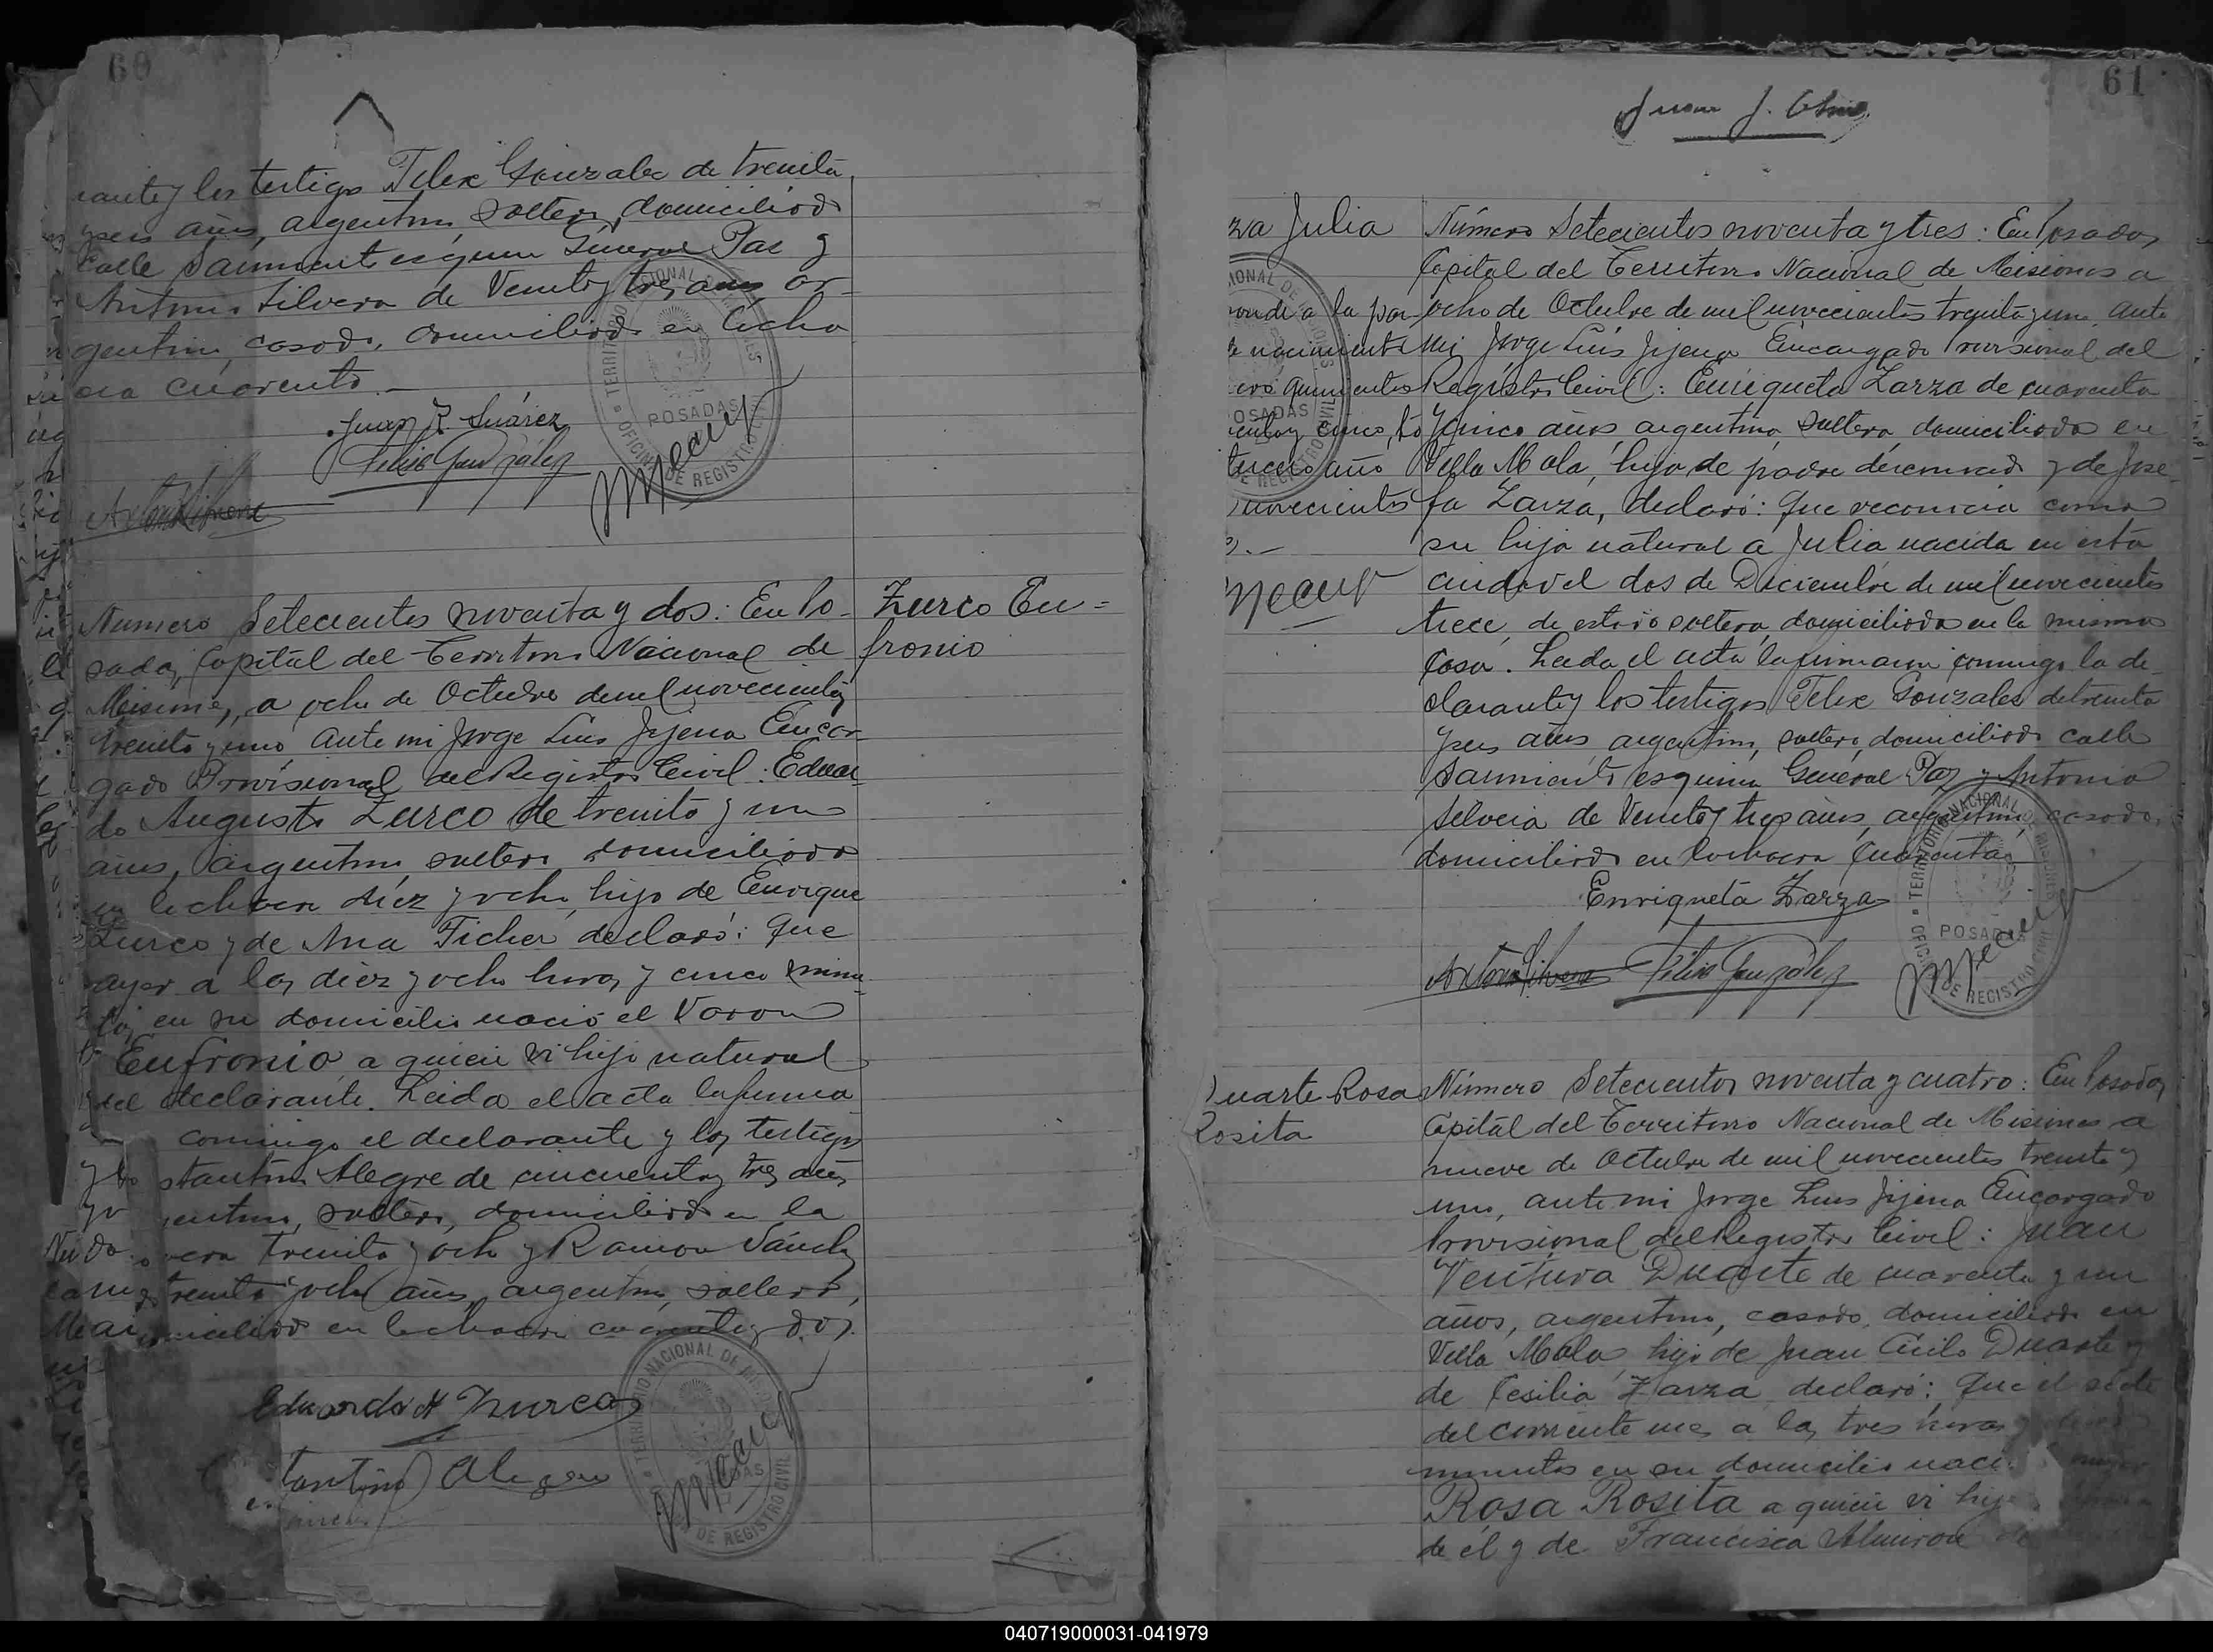 60
los testigos Felix Gonzalez de treinta
y seis años, argentino, soltero, domiciliado
calle Sarmiento esquina General Paz y
Antonio Silvera de Veinte y tres años, ar-
gentino, casado, domiciliado en
cuarenta.-
Juan R. Suárez
Felix González
TERRITORIO NACIONAL DE MISIONES
POSADAS
OFICINA DE REGISTRO CIVIL
Numero Setecientos noventa y dos: En Po-
sadas, Capital del Territorio Nacional de
Misiones, a ocho de Octubre de mil novecientos
treinta y uno ante mi Jorge Luis Jijena Encar-
gado Provisional del Registro Civil: Eduar-
do Augusto Zurco de treinta y un
años, argentino, soltero domiciliado
diez y ocho, hijo de Enrique
Zurco y de Ana Ficher declaró: que
ayer a las diez y ocho horas y cinco minu-
tos en su domicilio nació el Varon
Eufronio a quien vi hijo natural
del declarante. Leida el acta la firma
conmigo el declarante y los testigos
Alegre de cincuenta y tres años
soltero, domiciliado en la
treinta y ocho y Ramon
treinta y ocho años, argentino, soltero,
en la chacra cuarenta y dos.
Eduardo A Zurco
TERRITORIO NACIONAL DE
DE REGISTRO CIVIL
Zurco Eu=
fronio
61
Juan J.
Julia
a la par
nacimiento
quinientos
cinco, to
tercero año
novecientos
Número Setecientos noventa y tres: En Posadas
Capital del Territorio Nacional de Misiones a
ocho de Octubre de mil novecientos treinta y uno, ante
mi Jorge Luis Jijena Encargado Provisional del
Registro Civil: Enriqueta Zarza de cuarenta
y cinco años argentina, soltera, domiciliada en
Villa Mola, hija de padre desconocido y de Jose-
fa Zarza, declaró: que reconocia como
su hija natural a Julia nacida en esta
ciudad el dos de Diciembre de mil novecientos
trece, de estado soltera, domiciliada en la misma
casa. Leida el acta la firmaron conmigo la de-
clarante y los testigos Felix Gonzalez de treinta
y seis años argentino, soltero, domiciliado calle
Sarmiento esquina General Paz y Antonio
Silveira de Veinte y tres años, argentino, casado,
domiciliado en la chacra cuarenta
Enriqueta Zarza
Felix González
TERRITORIO NACIONAL DE MISIONES
POSADAS
DE REGISTRO CIVIL
Duarte Rosa
Rosita
Número Setecientos noventa y cuatro: En Posadas
Capital del Territorio Nacional de Misiones a
nueve de Octubre de mil novecientos treinta y
uno, ante mi Jorge Luis Jijena Encargado
Provisional del Registro Civil: Juan
Ventura Duarte de cuarenta y un
años, argentino, casado, domiciliado en
Villa Mola hijo de Juan Cirilo Duarte y
de Cesilia Zarza, declaró: Que el siete
del corriente mes a las tres horas
minutos en su domicilio nació
Rosa Rosita a quien vi hija
de él y de Francisca Almiron
040719000031-041979